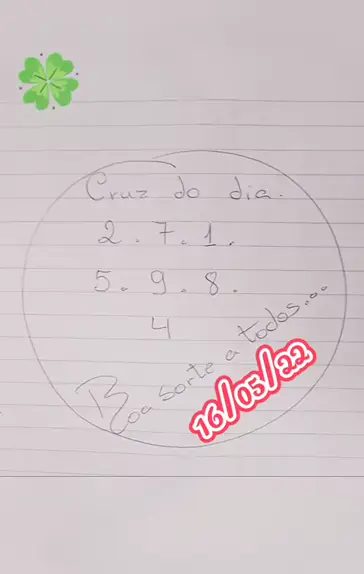 Cruz do dia.
2. 7. 1.
5. 9. 8.
4
Boa sorte a todos...
16/05/22